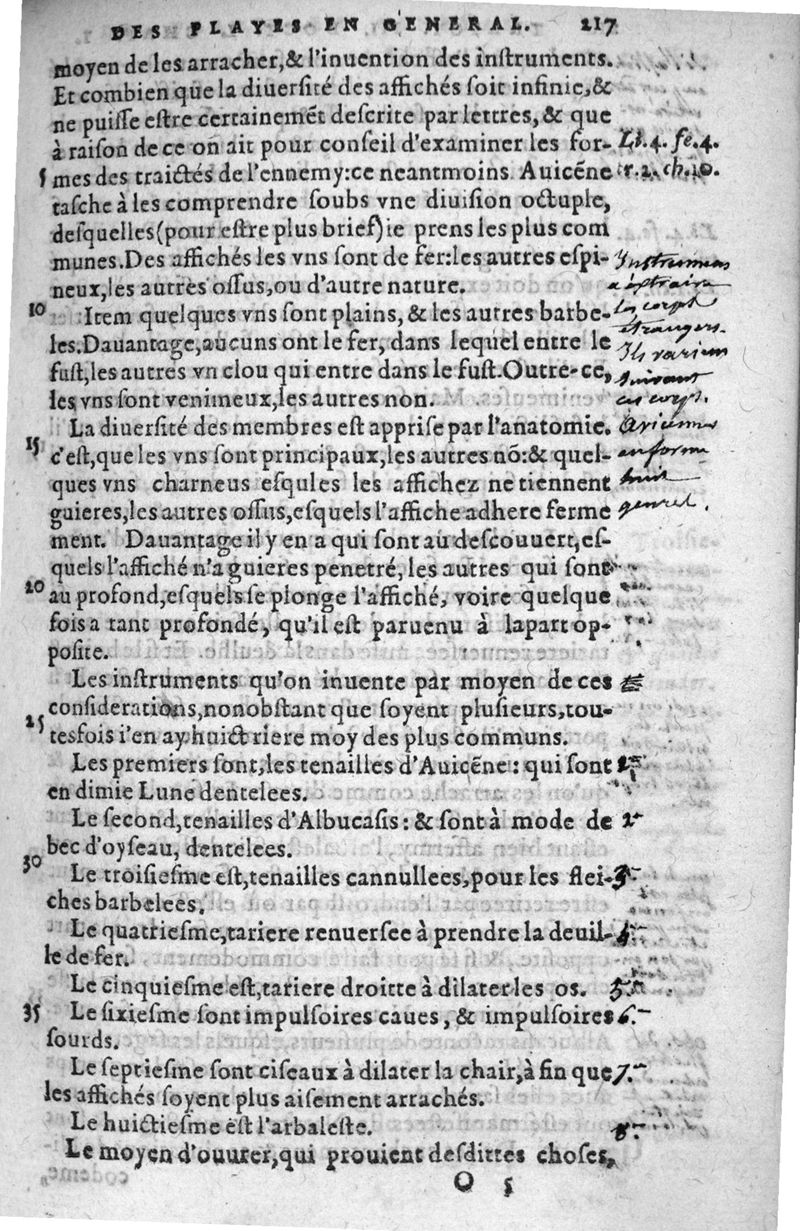 DES PLAYES EN GENERAL. 217
moyen de les arracher,& l'inuention des instruments.
Et combien que la diuersité des affichés soit infinie,&
ne puisse estre certainemēt descrite par lettres,& que
à raison de ce on ait pour conseil d'examiner les for- Li.4. fe.4.
5 mes des traictés de l'ennemy:ce neantmoins Auicēne tr.2. ch.10.
tasche à les comprendre soubs vne diuision octuple,
desquelles(pour estre plus brief)ie prens les plus com
munes.Des affichés les vns sont de fer:les autres espi- Instrumens
neux,les autres ossus,ou d'autre nature. a extraire
10 Item quelques vns sont plains, & les autres barbe- les corps
les.Dauantage,aucuns ont le fer, dans lequel entre le étrangers.
fust,les autres vn clou qui entre dans le fust.Outre-ce, Ils varient
les vns sont venimeux,les autres non. suivant
La diuersité des membres est apprise par l'anatomie. ces corps. Avicenne
15 c'est,que les vns sont principaux,les autres nō:& quel- en forme
ques vns charneus esqules les affichez ne tiennent huit
guieres,les autres ossus,esquels l'affiche adhere ferme genres.
ment. Dauantage il y en a qui sont au descouuert,es-
quels l'affiché n'a guieres penetré, les autres qui sont
20 au profond,esquels se plonge l'affiché, voire quelque
fois a tant profondé, qu'il est paruenu à la part op-
posite.
Les instruments qu'on inuente par moyen de ces
considerations,nonobstant que soyent plusieurs,tou-
25 tesfois i'en ay huict riere moy des plus communs.
Les premiers sont,les tenailles d'Auicēne : qui sont 1
en dimie Lune dentelees.
Le second,tenailles d'Albucasis : & sont à mode de 2
bec d'oyseau, dentelees.
30 Le troisiesme est,tenailles cannullees,pour les flei- 3
ches barbelees.
Le quatriesme,tariere renuersee à prendre la deuil- 4
le de fer.
Le cinquiesme est,tariere droitte à dilater les os. 5
35 Le sixiesme sont impulsoires caues, & impulsoires 6
sourds.
Le septiesme sont ciseaux à dilater la chair,à fin que 7
les affichés soyent plus aisement arrachés.
Le huictiesme est l'arbaleste. 8
Le moyen d'ouurer,qui prouient desdittes choses,
O 5